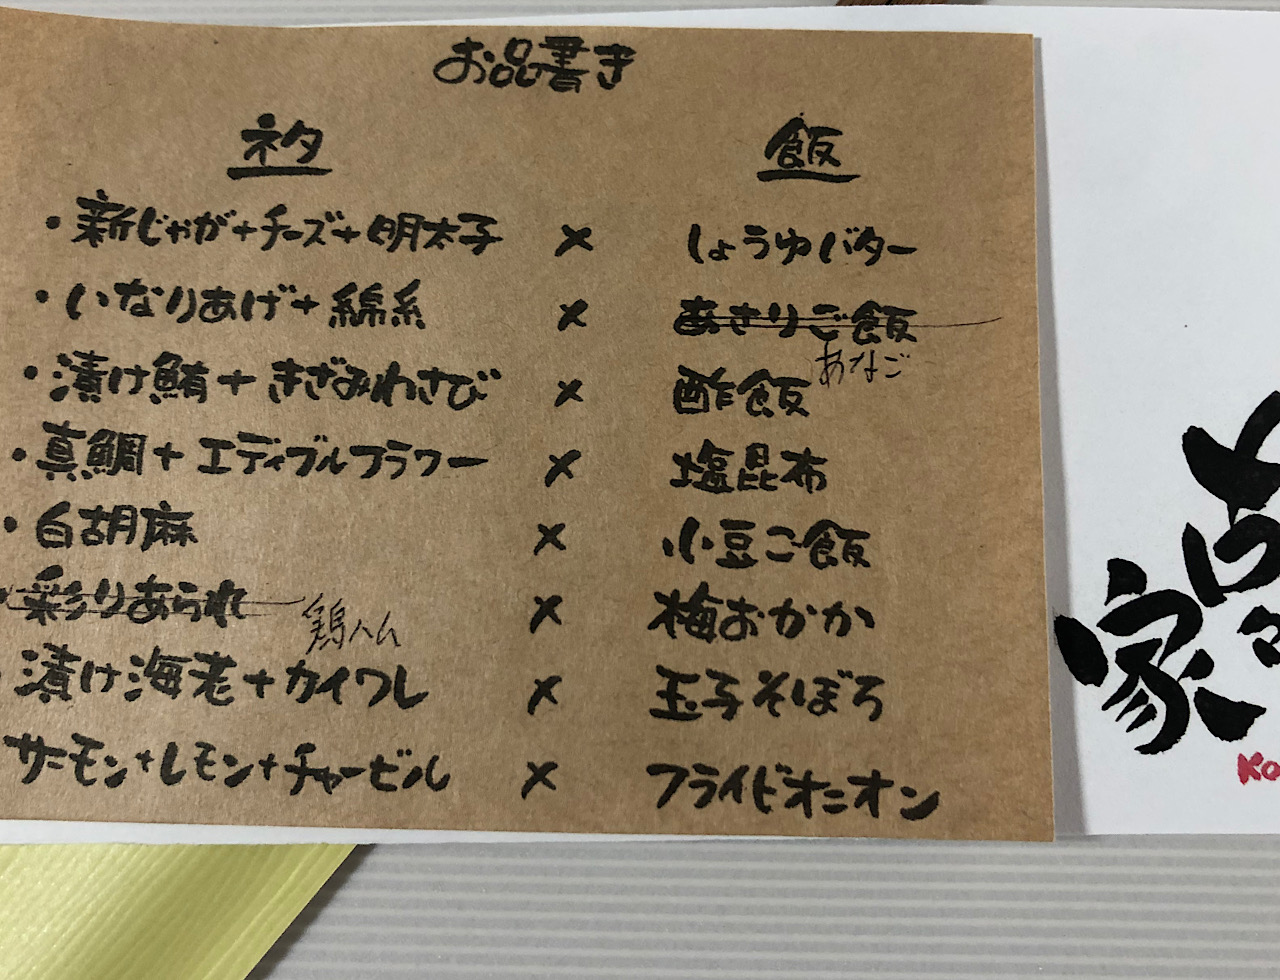 お品書き
ネタ 飯
・新じゃが+チーズ+明太子 × しょうゆバター
・いなりあげ+綿糸 × あさりご飯
あなご
・漬け鮪+きざみわさび × 酢飯
・真鯛+エディブルフラワー × 塩昆布
・白胡麻 × 小豆ご飯
・彩りあられ × 梅おかか
鶏ハム
・漬け海老+カイワレ × 玉子そぼろ
サーモン+レモン+チャービル × フライドオニオン
家
Ko